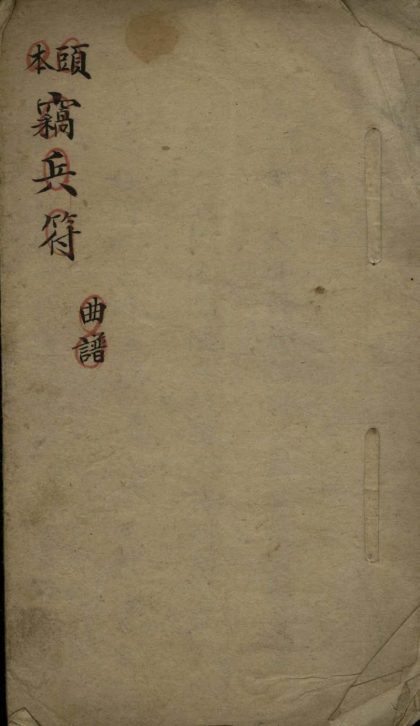 頭本
竊兵符
曲譜